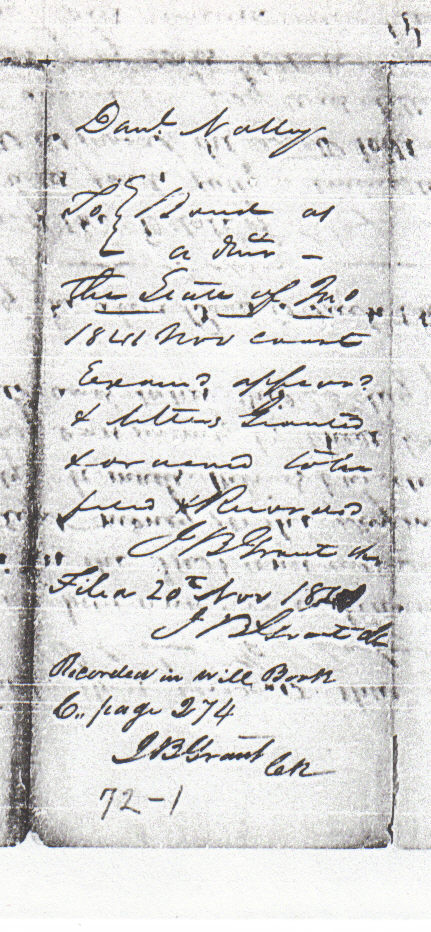 Danl. Nolley
To } Bond as
admr -
the State of Mo
1841 Nov Court
Examd approvd
& letters Granted
& ordered to be
filed & Recorded
J B Grant Ck
Filed 20th Nov
J B Grant Ck
Recorded in Will Book
C., page 274
J B Grant Ck
72-1